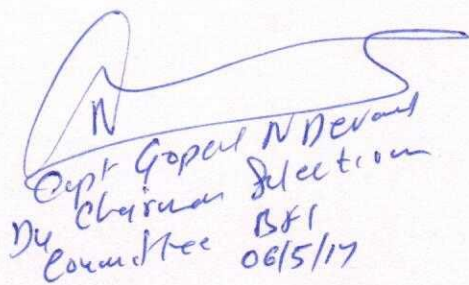 N
Capt Gopal N Devang
Dy Chairman Selection
Committee BFI
06/5/17